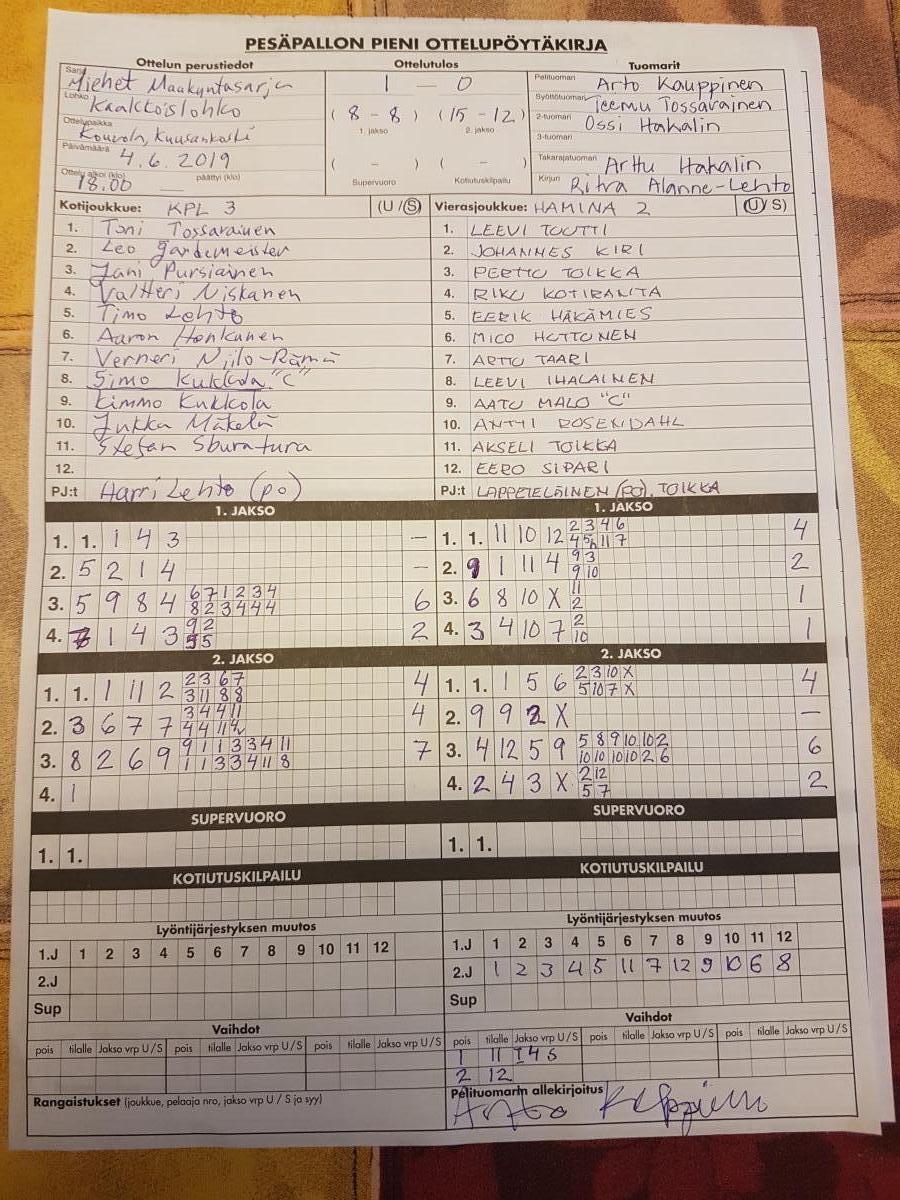 PESÄPALLON PIENI OTTELUPÖYTÄKIRJA
Ottelun perustiedot Ottelutulos Tuomarit
Sarja Miehet Maakuntasarja
Lohko Kaakkoislohko
Ottelupaikka Kouvola, Kuusankoski
Päivämäärä 4.6.2019
Ottelu alkoi (klo) 18.00 päättyi (klo)
1 – 0
(8 – 8) (15 – 12)
1. jakso 2. jakso
( – ) ( – )
Supervuoro Kotiutuskilpailu
Pelituomari Arto Kauppinen
Syöttötuomari Teemu Tossavainen
2-tuomari Ossi Hakalin
3-tuomari
Takarajatuomari Arttu Hakalin
Kirjuri Ritva Alanne-Lehto
Kotijoukkue: KPL 3 (U/S)
1. Toni Tossavainen
2. Leo Gardemeister
3. Jani Pursiainen
4. Valtteri Niskanen
5. Timo Lehto
6. Aaron Honkanen
7. Verneri Niilo-Rämä
8. Simo Kukkola "C"
9. Kimmo Kukkola
10. Jukka Mäkelä
11. Stefan Sburatura
12.
PJ:t Harri Lehto (po)
Vierasjoukkue: HAMINA 2 (U/S)
1. LEEVI TOUTTI
2. JOHANNES KIRI
3. PERTTU TOIKKA
4. RIKU KOTIRANTA
5. EERIK HÄKÄMIES
6. MICO HUTTUNEN
7. ARTTU TAARI
8. LEEVI IHALAINEN
9. AATU MALO "C"
10. ANTTI ROSENDAHL
11. AKSELI TOIKKA
12. EERO SIPARI
PJ:t LAPPETELÄINEN (PO), TOIKKA
1. JAKSO
1. 1. 1 4 3 –
2. 5 2 1 4 –
3. 5 9 8 4 6 7 1 2 3 4 6
8 2 3 4 4 4
4. 7 1 4 3 9 2 2
5 5
1. JAKSO
1. 1. 11 10 12 2 3 4 6 4
4 5 11 7
2. 9 1 11 4 9 3 2
9 10
3. 6 8 10 X 11 1
2
4. 3 4 10 7 2 1
10
2. JAKSO
1. 1. 1 11 2 2 3 6 7 4
3 11 8 8
2. 3 6 7 7 3 4 4 11 4
4 4 11
3. 8 2 6 9 9 1 1 3 3 4 11 7
1 1 3 3 4 11 8
4. 1
2. JAKSO
1. 1. 1 5 6 2 3 10 X 4
5 10 7 X
2. 9 9 2 X –
3. 4 12 5 9 5 8 9 10 10 2 6
10 10 10 10 2 6
4. 2 4 3 X 2 12 2
5 7
SUPERVUORO
1. 1.
SUPERVUORO
1. 1.
KOTIUTUSKILPAILU
KOTIUTUSKILPAILU
Lyöntijärjestyksen muutos
1.J 1 2 3 4 5 6 7 8 9 10 11 12
2.J
Sup
Lyöntijärjestyksen muutos
1.J 1 2 3 4 5 6 7 8 9 10 11 12
2.J 1 2 3 4 5 11 7 12 9 10 6 8
Sup
Vaihdot
pois tilalle Jakso vrp U/S pois tilalle Jakso vrp U/S pois tilalle Jakso vrp U/S
Vaihdot
pois tilalle Jakso vrp U/S pois tilalle Jakso vrp U/S pois tilalle Jakso vrp U/S
1 11 I 4 S
2 12
Rangaistukset (joukkue, pelaaja nro, jakso vrp U / S ja syy)
Pelituomarin allekirjoitus